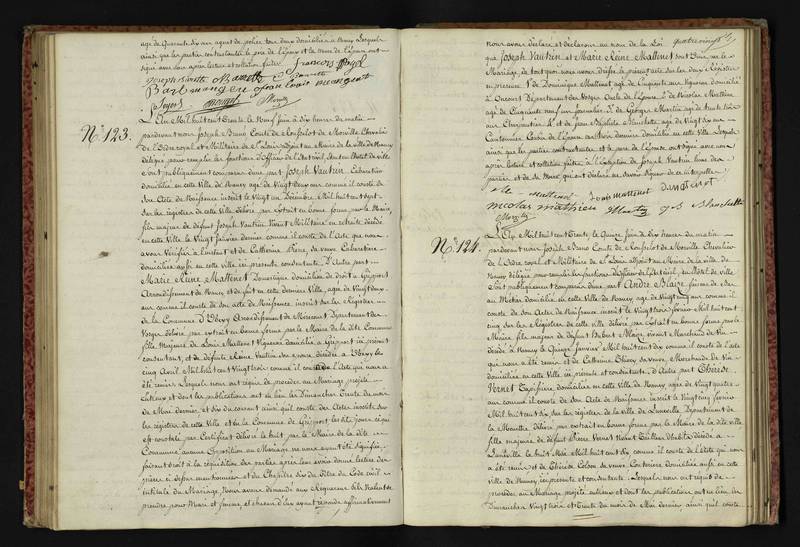 agé de Quarante six ans agent de police tous deux domiciliés à Nancy Lesquels
ainsi que les parties contractantes le père de l'Epoux et la mère de l'Epouse ont
signé avec nous après lecture et collation faite
N° 123.
L'An Mil huit cent Trente le Neuf Juin à dix heures du matin
pardevant nous Joseph Bruno Comte de Mor ville Chevalier
de l'Ordre royal et Militaire de St Louis adjoint au Maire de la ville de Nancy
délégué pour remplir les fonctions d'Officier de l'Etat civil, sont en l'hôtel de ville
publiquement comparus d'une part Joseph Vautrin Cabaretier
domicilié en cette Ville de Nancy agé de Vingt deux ans comme il conste de
son Acte de Naissance inscrit le Vingt un Décembre Mil huit cent sept
sur les registres de cette Ville délivré par extrait en bonne forme par le Maire
fils majeur de défunt Joseph Vautrin vivant Militaire en retraite décédé
en cette ville le Vingt Janvier dernier comme il conste de l'Acte que nous
avons Vérifié à l'instant et de Catherine sa veuve Cabaretière
domiciliée aussi en cette ville ici présente consentante. D'Autre part
Marie Reine Mattenet Domestique domiciliée de droit à
Arrondissement de Nancy et de fait en cette dernière Ville agée de Vingt deux
ans comme il conste de son acte de Naissance inscrit sur les Registres
de la Commune Arrondissement de Mirecourt Département des
Vosges délivré par extrait en bonne forme par le Maire de la dite Commune
fille Majeure de Louis Mattenet Vigneron domicilié à ici présent
consentant, et de défunte Reine Vautrin son épouse décédée
cinq Avril Mil huit cent Vingt trois comme il conste de l'Acte qui nous a
été remis Lesquels nous ont requis de procéder au Mariage projeté
entreux et dont les publications ont eu lieu les Dimanches Trente du mois
de Mai dernier, et dix du courant ainsi qu'il conste des Actes inscrits sur
les registres de cette Ville et de la Commune de les dits jours ce qui
est constaté par Certificat délivré le huit par le Maire de la dite
Commune aucune Opposition au Mariage ne nous ayant été signifiée
faisant droit à la réquisition des parties après leur avoir donné lecture des
pièces ci dessus mentionnées et du Chapitre six du Titre du Code civil
intitulé du Mariage, Nous avons demandé aux Requérans s'ils veulent se
prendre pour Mari et femme, et chacun d'eux ayant répondu affirmativement
quatrevingt
nous avons déclaré et déclarons au nom de la Loi
que Joseph Vautrin et Marie Reine Mattenet sont Unis par le
Mariage, de tout quoi nous avons dressé le présent acte sur les deux Registres
en présence 1° de Dominique Mattenet agé de Cinquante ans vigneron domicilié
à Département des Vosges Oncle de l'Epouse 2° de Nicolas
agé de Cinquante neuf ans journalier 3° de Georges Martin agé de trente trois
ans Charpentier 4° et de Jean Baptiste Blanchette agé de Vingt six ans
Cordonnier Cousin de l'Epouse ces trois derniers domiciliés en cette Ville Lesquels
ainsi que les parties contractantes et le père de l'Epouse ont signé avec nous
après lecture et collation faite à l'exception de Joseph Vautrin l'une des
parties et de sa Mère qui ont déclaré ne savoir signer de ce interpellés
louis mattenet
nicolas mathieu
N° 124.
L'An Mil huit cent Trente le Quinze Juin à dix heures du matin
pardevant nous Joseph Bruno Comte de Morville Chevalier
de l'Ordre royal et Militaire de St Louis adjoint au Maire de la ville de
Nancy délégué pour remplir les fonctions d'Officier de l'Etat civil, en l'hôtel de ville
sont publiquement comparus d'une part André Blaise
domicilié en cette Ville de Nancy agé de Vingt cinq ans comme il
conste de son Acte de Naissance inscrit le Vingt trois février Mil huit cent
cinq sur les Registres de cette ville délivré par Extrait en bonne forme par le
Maire fils majeur de défunt Blaise vivant Marchand de Vin
décédé à Nancy le Quinze Janvier Mil huit cent dix comme il conste de l'acte
qui nous a été remis et de Catherine Thiery sa veuve, Marchande de Vin
domiciliée en cette Ville ici présente et consentante. D'Autre part Thérèse
Vernet Tapissière domiciliée en cette Ville de Nancy agée de Vingt quatre
ans comme il conste de son Acte de Naissance inscrit le Vingt cinq février
Mil huit cent six sur les registres de la ville de Lunéville Département de
la Meurthe délivré par extrait en bonne forme par le Maire de la dite ville
fille majeure de défunt Pierre Vernet vivant Tailleur d'habits décédé à
Lunéville le huit Mai Mil huit cent dix comme il conste de l'acte qui nous
a été remis et de Thérèse Colson sa veuve Couturière domiciliée aussi en cette
ville de Nancy ici présente et consentante. Lesquels nous ont requis de
procéder au Mariage projeté entreux et dont les publications ont eu lieu les
Dimanches Vingt trois et Trente du mois de Mai dernier, ainsi qu'il conste